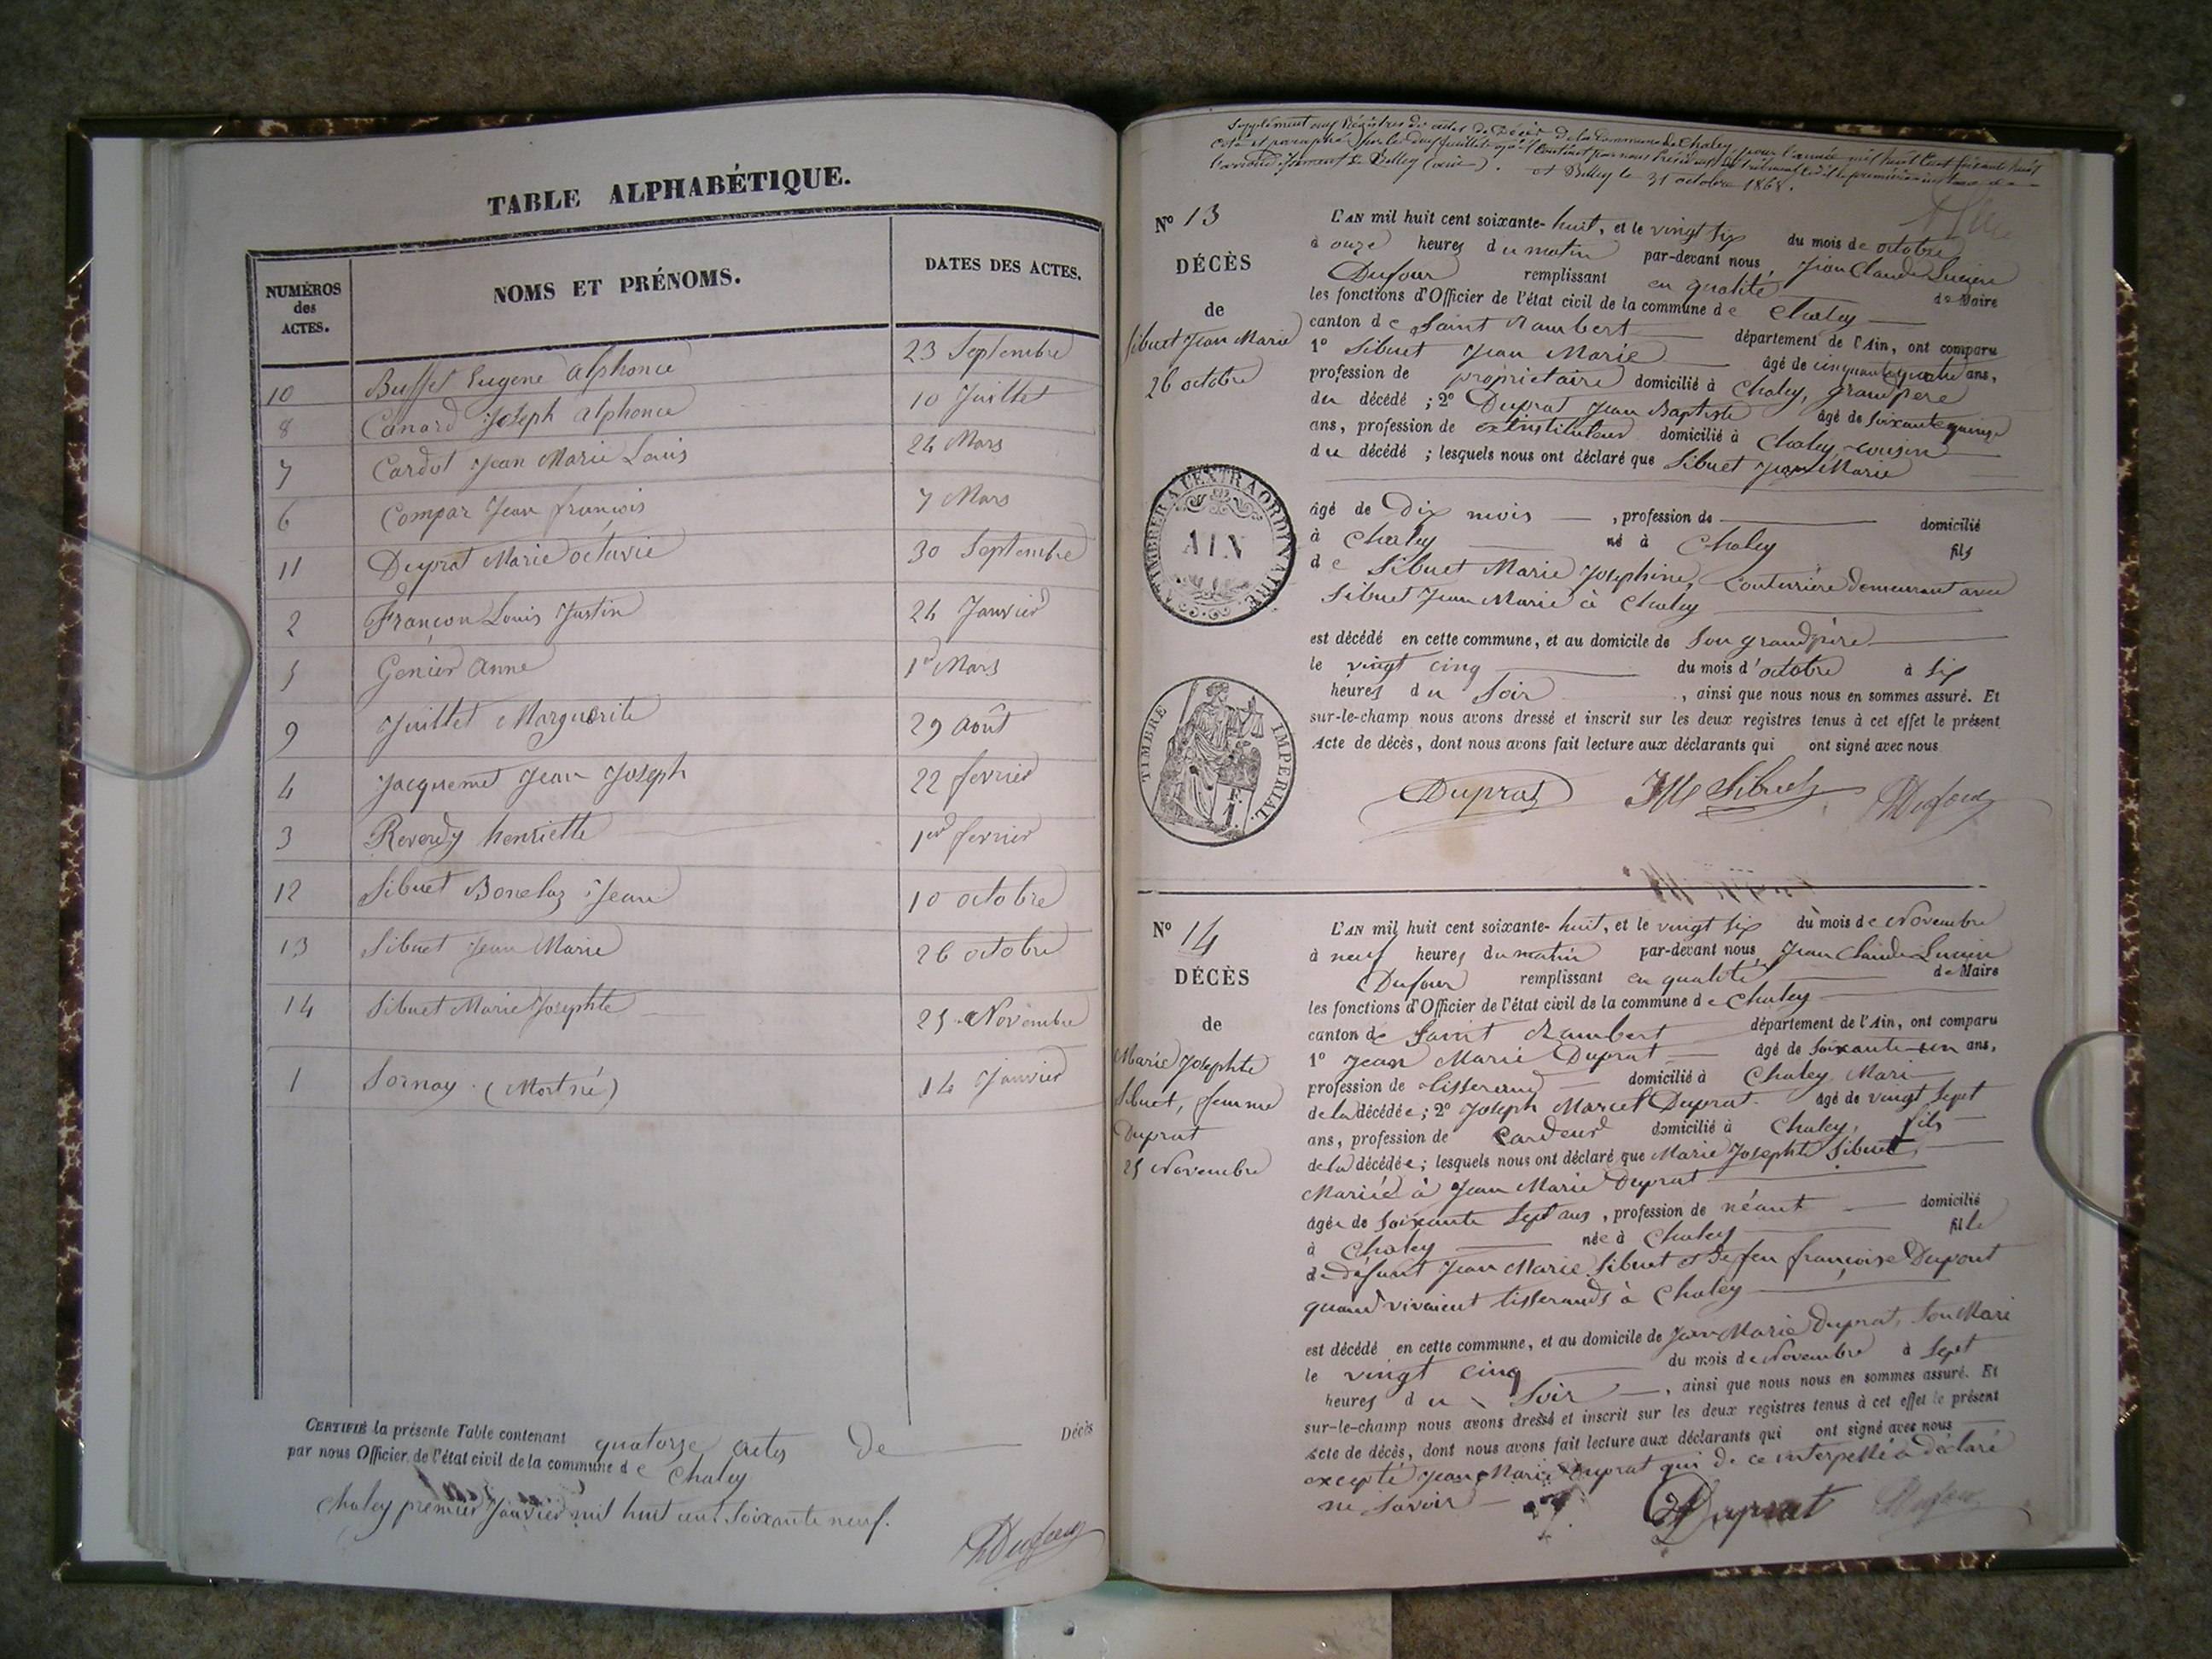 TABLE ALPHABÉTIQUE.
NUMÉROS des ACTES.
NOMS ET PRÉNOMS.
DATES DES ACTES.
10 Buffet Eugene Alphonce 23 Septembre
8 Canard Joseph Alphonce 10 Juillet
7 Cardot Jean Marie Louis 24 Mars
6 Compar Jean françois 7 Mars
11 Duprat Marie Octavie 30 Septembre
2 Françon Louis Justin 24 Janvier
5 Genier Anne 1er Mars
9 Juillet Marguerite 29 Août
4 Jacquemet Jean Joseph 22 fevrier
3 Reverdy henriette 1er fevrier
12 Sibuet Bonelaz Jean 10 octobre
13 Sibuet Jean Marie 26 octobre
14 Sibuet Marie Josephte 25 Novembre
1 Sornay (Mort né) 14 Janvier
CERTIFIÉ la présente Table contenant quatorze actes de Décès
par nous Officier de l'état civil de la commune de Chaley
Chaley premier Janvier mil huit cent soixante neuf.
Dufour
Supplément aux Régistres des actes de Décès de la Commune de Chaley, pour l'année mil huit cent soixante huit
Coté et paraphé par nous Président du tribunal de première instance de
l'arrondissement de Belley (ain). A Belley le 31 octobre 1868.
No 13
DÉCÈS
de
Sibuet Jean Marie
26 octobre
A TIMBRER A L'EXTRAORDINAIRE
AIN
TIMBRE IMPERIAL
L'AN mil huit cent soixante-huit, et le vingt six du mois de octobre
à onze heures du matin par-devant nous Jean Claude Lucien
Dufour remplissant en qualité de Maire
les fonctions d'Officier de l'état civil de la commune de Chaley
canton de Saint Rambert département de l'Ain, ont comparu
1o Sibuet Jean Marie âgé de cinquante quatre ans,
profession de propriétaire domicilié à Chaley, grand père
du décédé ; 2o Duprat Jean Baptiste âgé de soixante quinze
ans, profession de ex instituteur domicilié à Chaley, cousin
du décédé ; lesquels nous ont déclaré que Sibuet Jean Marie
âgé de Dix mois , profession de domicilié
à Chaley né à Chaley fils
de Sibuet Marie Josephine, Couturière demeurant avec
Sibuet Jean Marie à Chaley
est décédé en cette commune, et au domicile de son grand père
le vingt cinq du mois d'octobre à six
heures du soir , ainsi que nous nous en sommes assuré. Et
sur-le-champ nous avons dressé et inscrit sur les deux registres tenus à cet effet le présent
Acte de décès, dont nous avons fait lecture aux déclarants qui ont signé avec nous
Duprat JM Sibuet Dufour
No 14
DÉCÈS
de
Marie Josephte
Sibuet, femme
Duprat
25 Novembre
L'AN mil huit cent soixante-huit, et le vingt six du mois de Novembre
à neuf heures du matin par-devant nous Jean Claude Lucien
Dufour remplissant en qualité de Maire
les fonctions d'Officier de l'état civil de la commune de Chaley
canton de Saint Rambert département de l'Ain, ont comparu
1o Jean Marie Duprat âgé de soixante-un ans,
profession de tisserand domicilié à Chaley Mari
de la décédée ; 2o Joseph Marcel Duprat âgé de vingt sept
ans, profession de cardeur domicilié à Chaley, fils
de la décédée ; lesquels nous ont déclaré que Marie Josephte Sibuet
Mariée à Jean Marie Duprat
âgée de soixante sept ans , profession de néant domicilié
à Chaley née à Chaley fille
de défunt Jean Marie Sibuet et de feu françoise Dupont
quand vivaient tisserands à Chaley
est décédé en cette commune, et au domicile de Jean Marie Duprat, son Mari
le vingt cinq du mois de Novembre à sept
heures du soir , ainsi que nous nous en sommes assuré. Et
sur-le-champ nous avons dressé et inscrit sur les deux registres tenus à cet effet le présent
acte de décès, dont nous avons fait lecture aux déclarants qui ont signé avec nous
excepté Jean Marie Duprat qui de ce interpellé a déclaré
ne savoir
Duprat Dufour